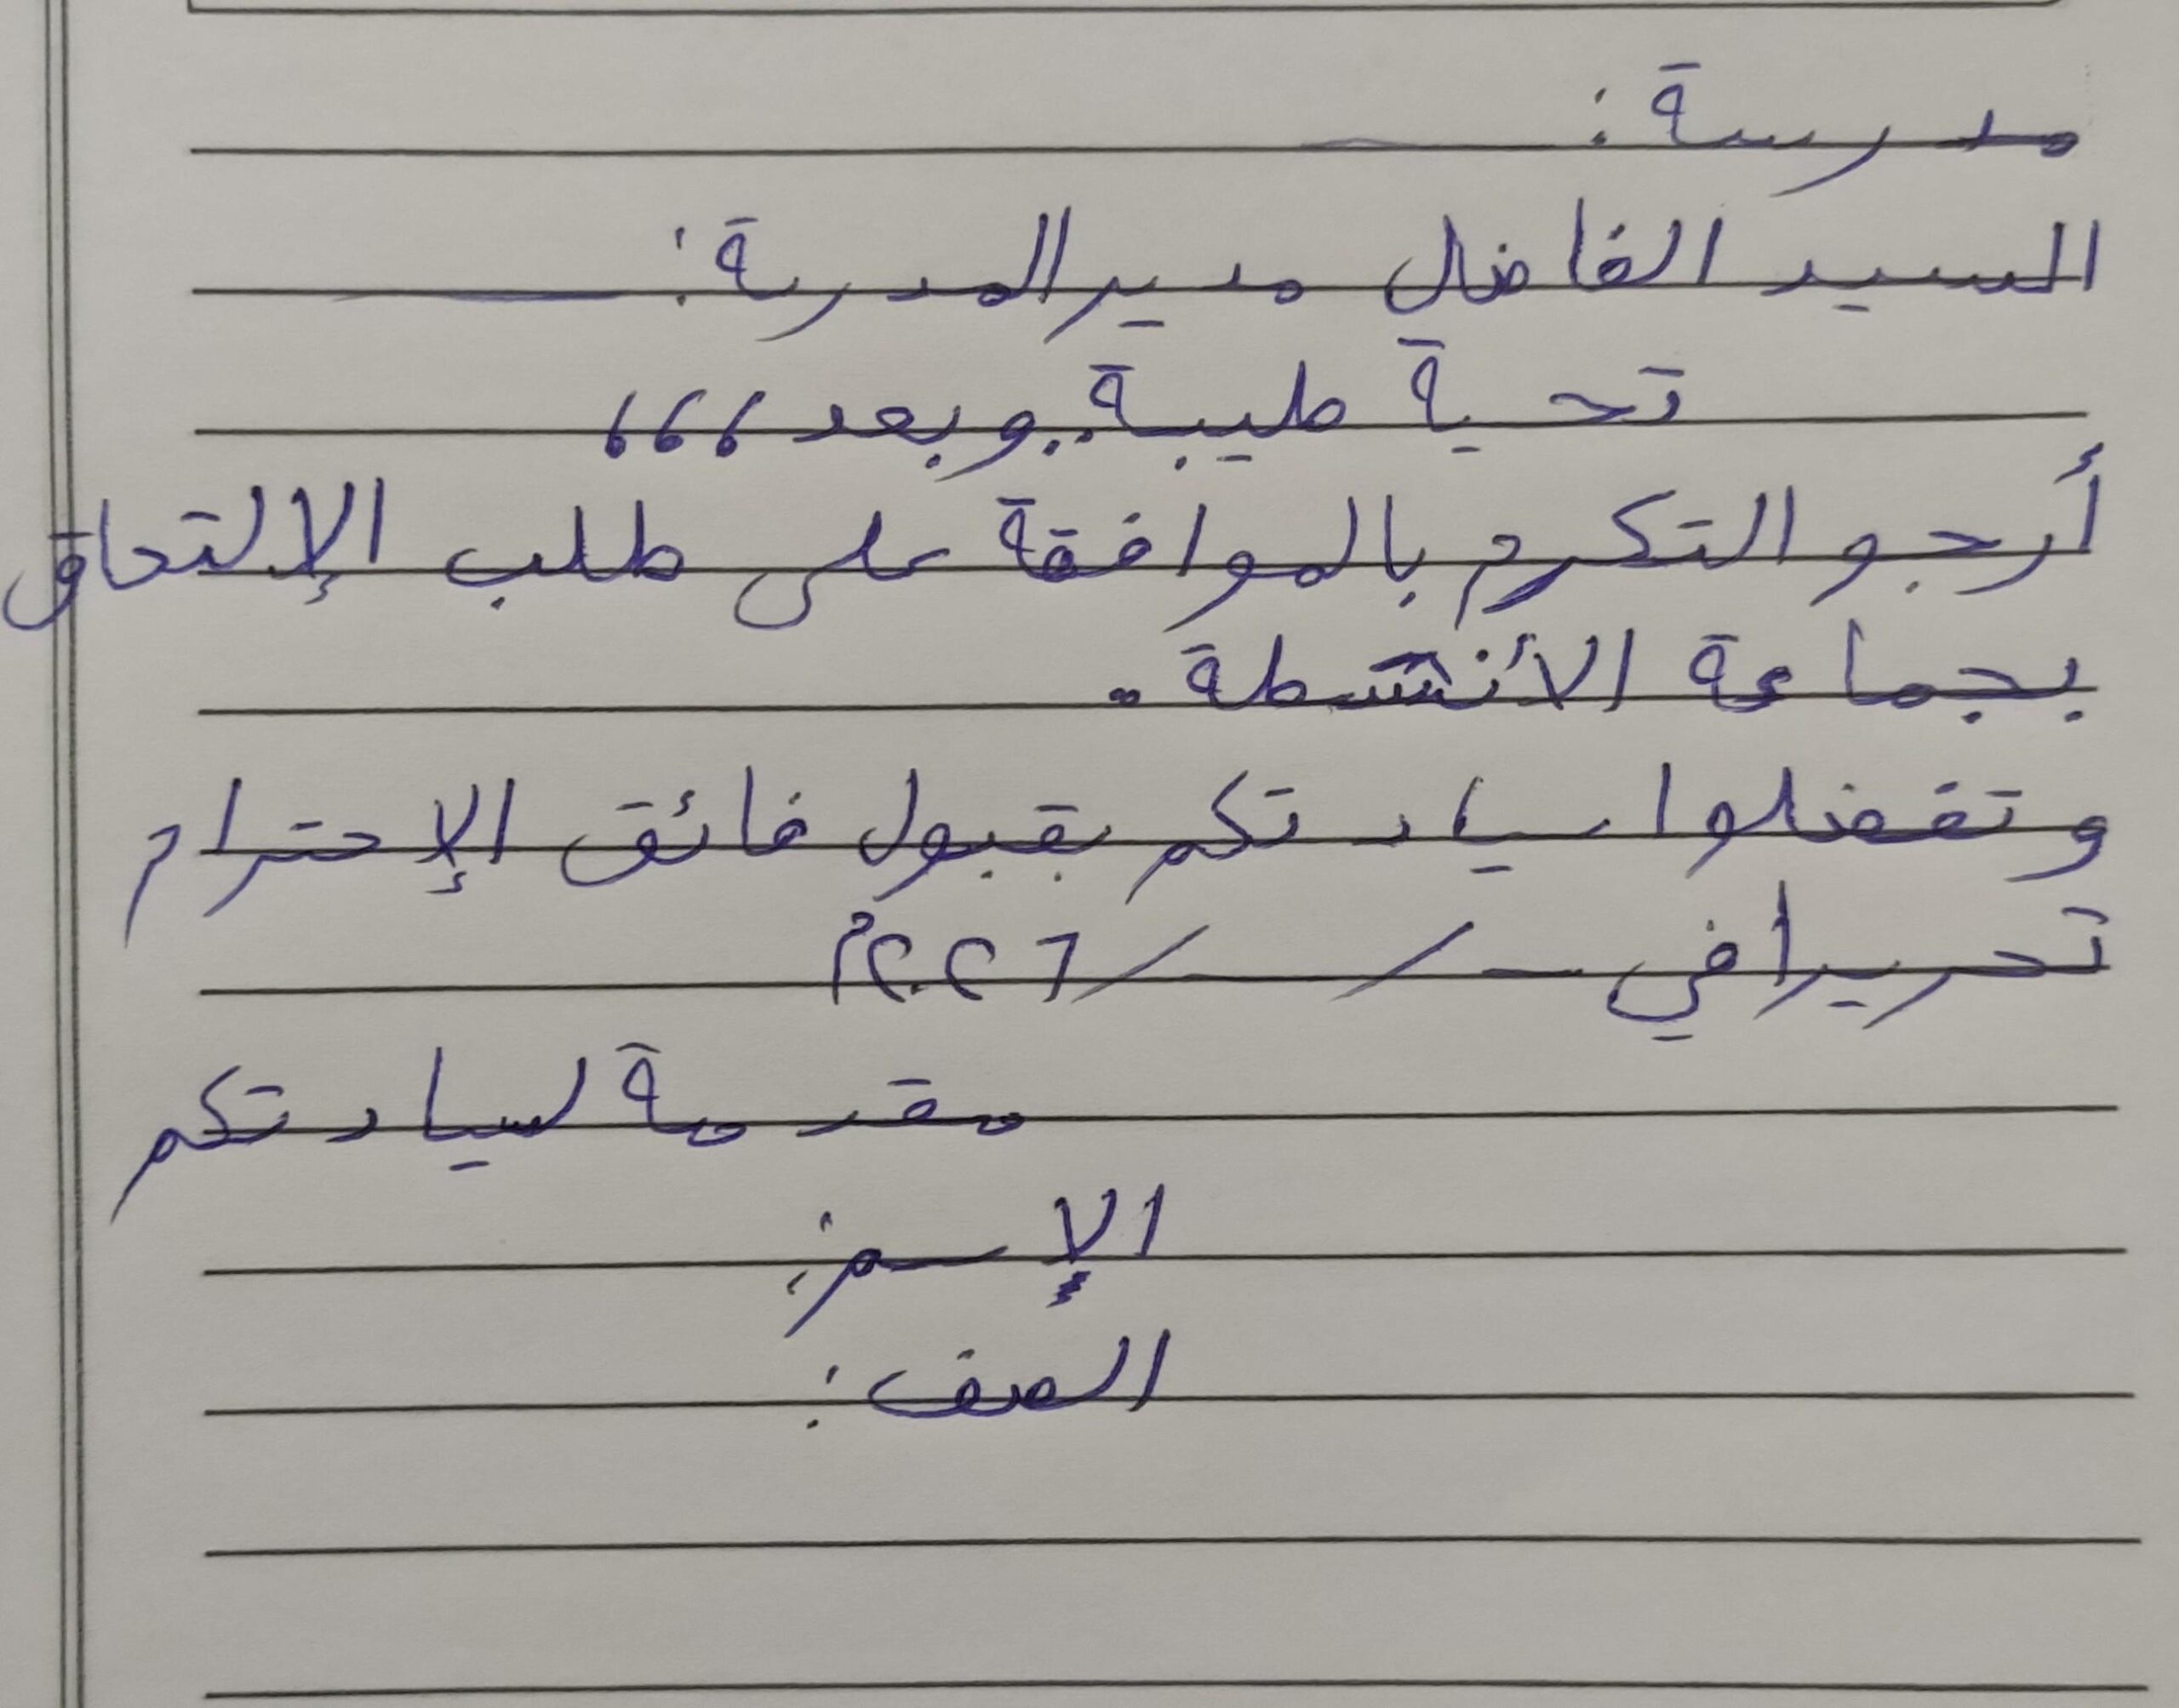 مدرسة :
السيد الفاضل مدير المدرسة :
تحية طيبة .. وبعد ،،،
أرجو التكرم بالموافقة على طلب الإلتحاق
بجماعة الأنشطة .
وتفضلوا سيادتكم بقبول فائق الإحترام
تحريرا في / / ٢٠٢٦م
مقدمة لسيادتكم
الإسم :
الصف :